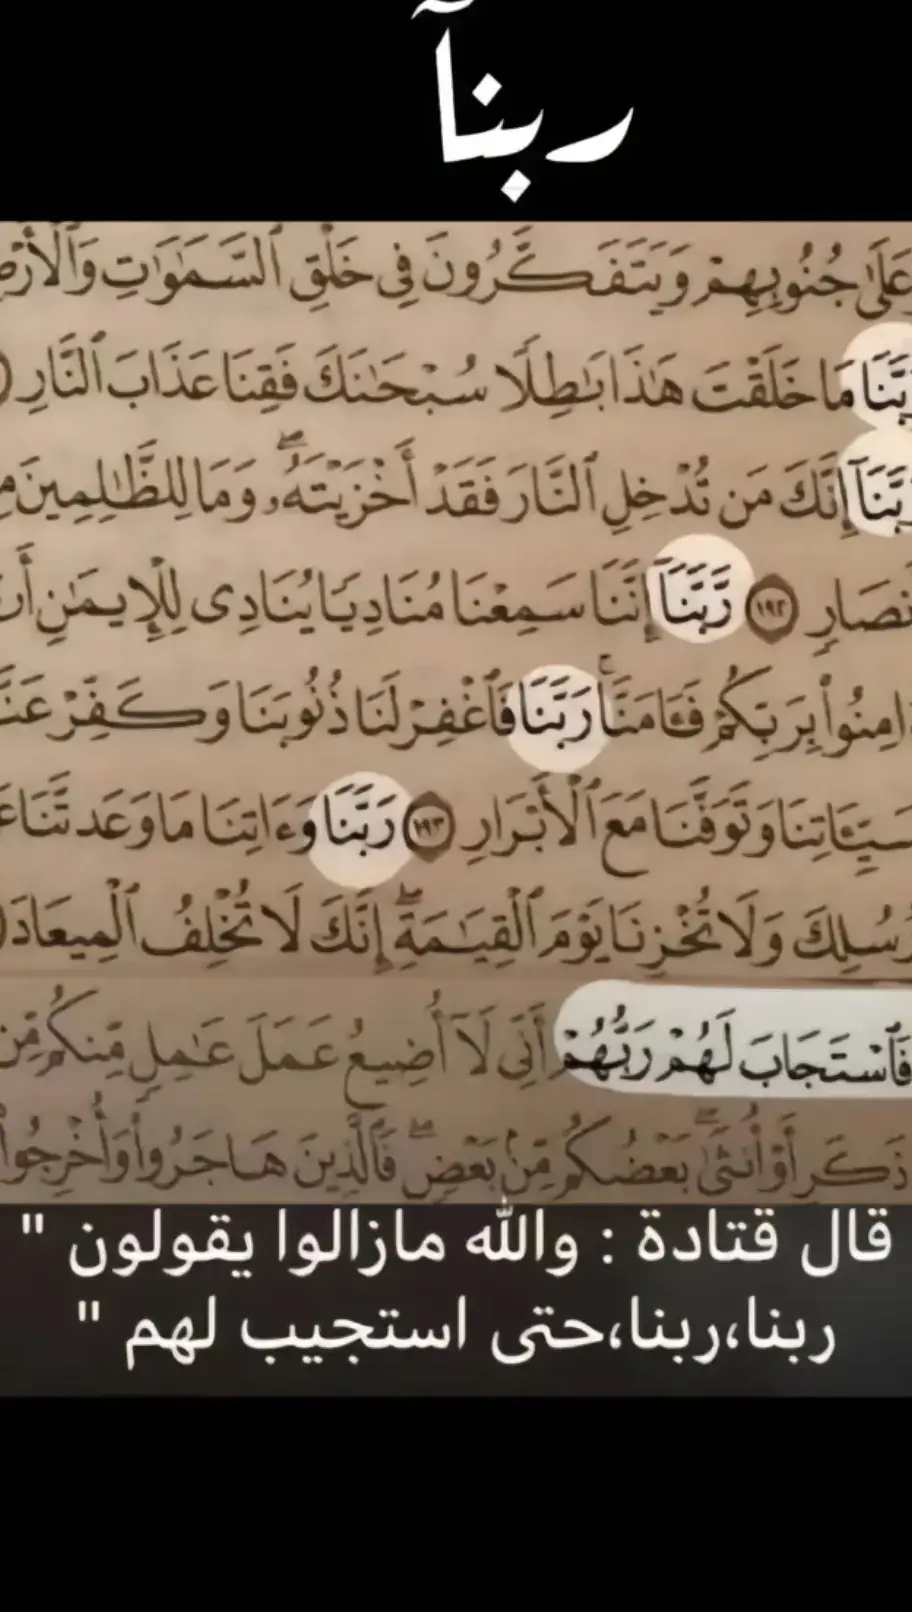 ربنآ
عَلَىٰ جُنُوبِهِمْ وَيَتَفَكَّرُونَ فِى خَلْقِ ٱلسَّمَٰوَٰتِ وَٱلْأَرْضِ
رَبَّنَا مَا خَلَقْتَ هَٰذَا بَٰطِلًا سُبْحَٰنَكَ فَقِنَا عَذَابَ ٱلنَّارِ
رَبَّنَآ إِنَّكَ مَن تُدْخِلِ ٱلنَّارَ فَقَدْ أَخْزَيْتَهُۥ ۖ وَمَا لِلظَّٰلِمِينَ
أَنصَارٍ ١٩٢ رَّبَّنَآ إِنَّنَا سَمِعْنَا مُنَادِيًا يُنَادِى لِلْإِيمَٰنِ أَنْ
ءَامِنُوا۟ بِرَبِّكُمْ فَـَٔامَنَّا ۚ رَبَّنَا فَٱغْفِرْ لَنَا ذُنُوبَنَا وَكَفِّرْ عَنَّا
سَيِّـَٔاتِنَا وَتَوَفَّنَا مَعَ ٱلْأَبْرَارِ ١٩٣ رَبَّنَا وَءَاتِنَا مَا وَعَدتَّنَا
رُسُلِكَ وَلَا تُخْزِنَا يَوْمَ ٱلْقِيَٰمَةِ ۗ إِنَّكَ لَا تُخْلِفُ ٱلْمِيعَادَ
فَٱسْتَجَابَ لَهُمْ رَبُّهُمْ أَنِّى لَآ أُضِيعُ عَمَلَ عَٰمِلٍ مِّنكُم مِّن
ذَكَرٍ أَوْ أُنثَىٰ ۖ بَعْضُكُم مِّنۢ بَعْضٍ ۖ فَٱلَّذِينَ هَاجَرُوا۟ وَأُخْرِجُوا۟
قال قتادة : والله مازالوا يقولون "
ربنا،ربنا،حتى استجيب لهم "